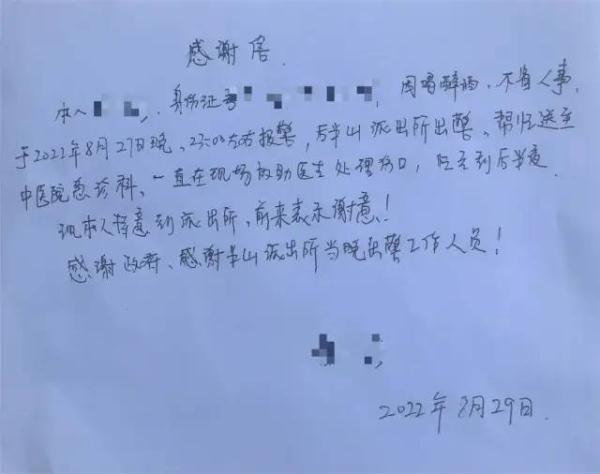 感谢信.
本人 ，身份证号 ，因喝醉酒、不省人事，
于2022年8月27日晚、23:00左右报警，后半山派出所出警、帮忙送至
中医院急诊科、一直在现场协助医生处理伤口，忙到后半夜.
现本人特意到派出所，前来表示谢意！
感谢政府、感谢半山派出所当晚出警工作人员！
2022年8月29日.